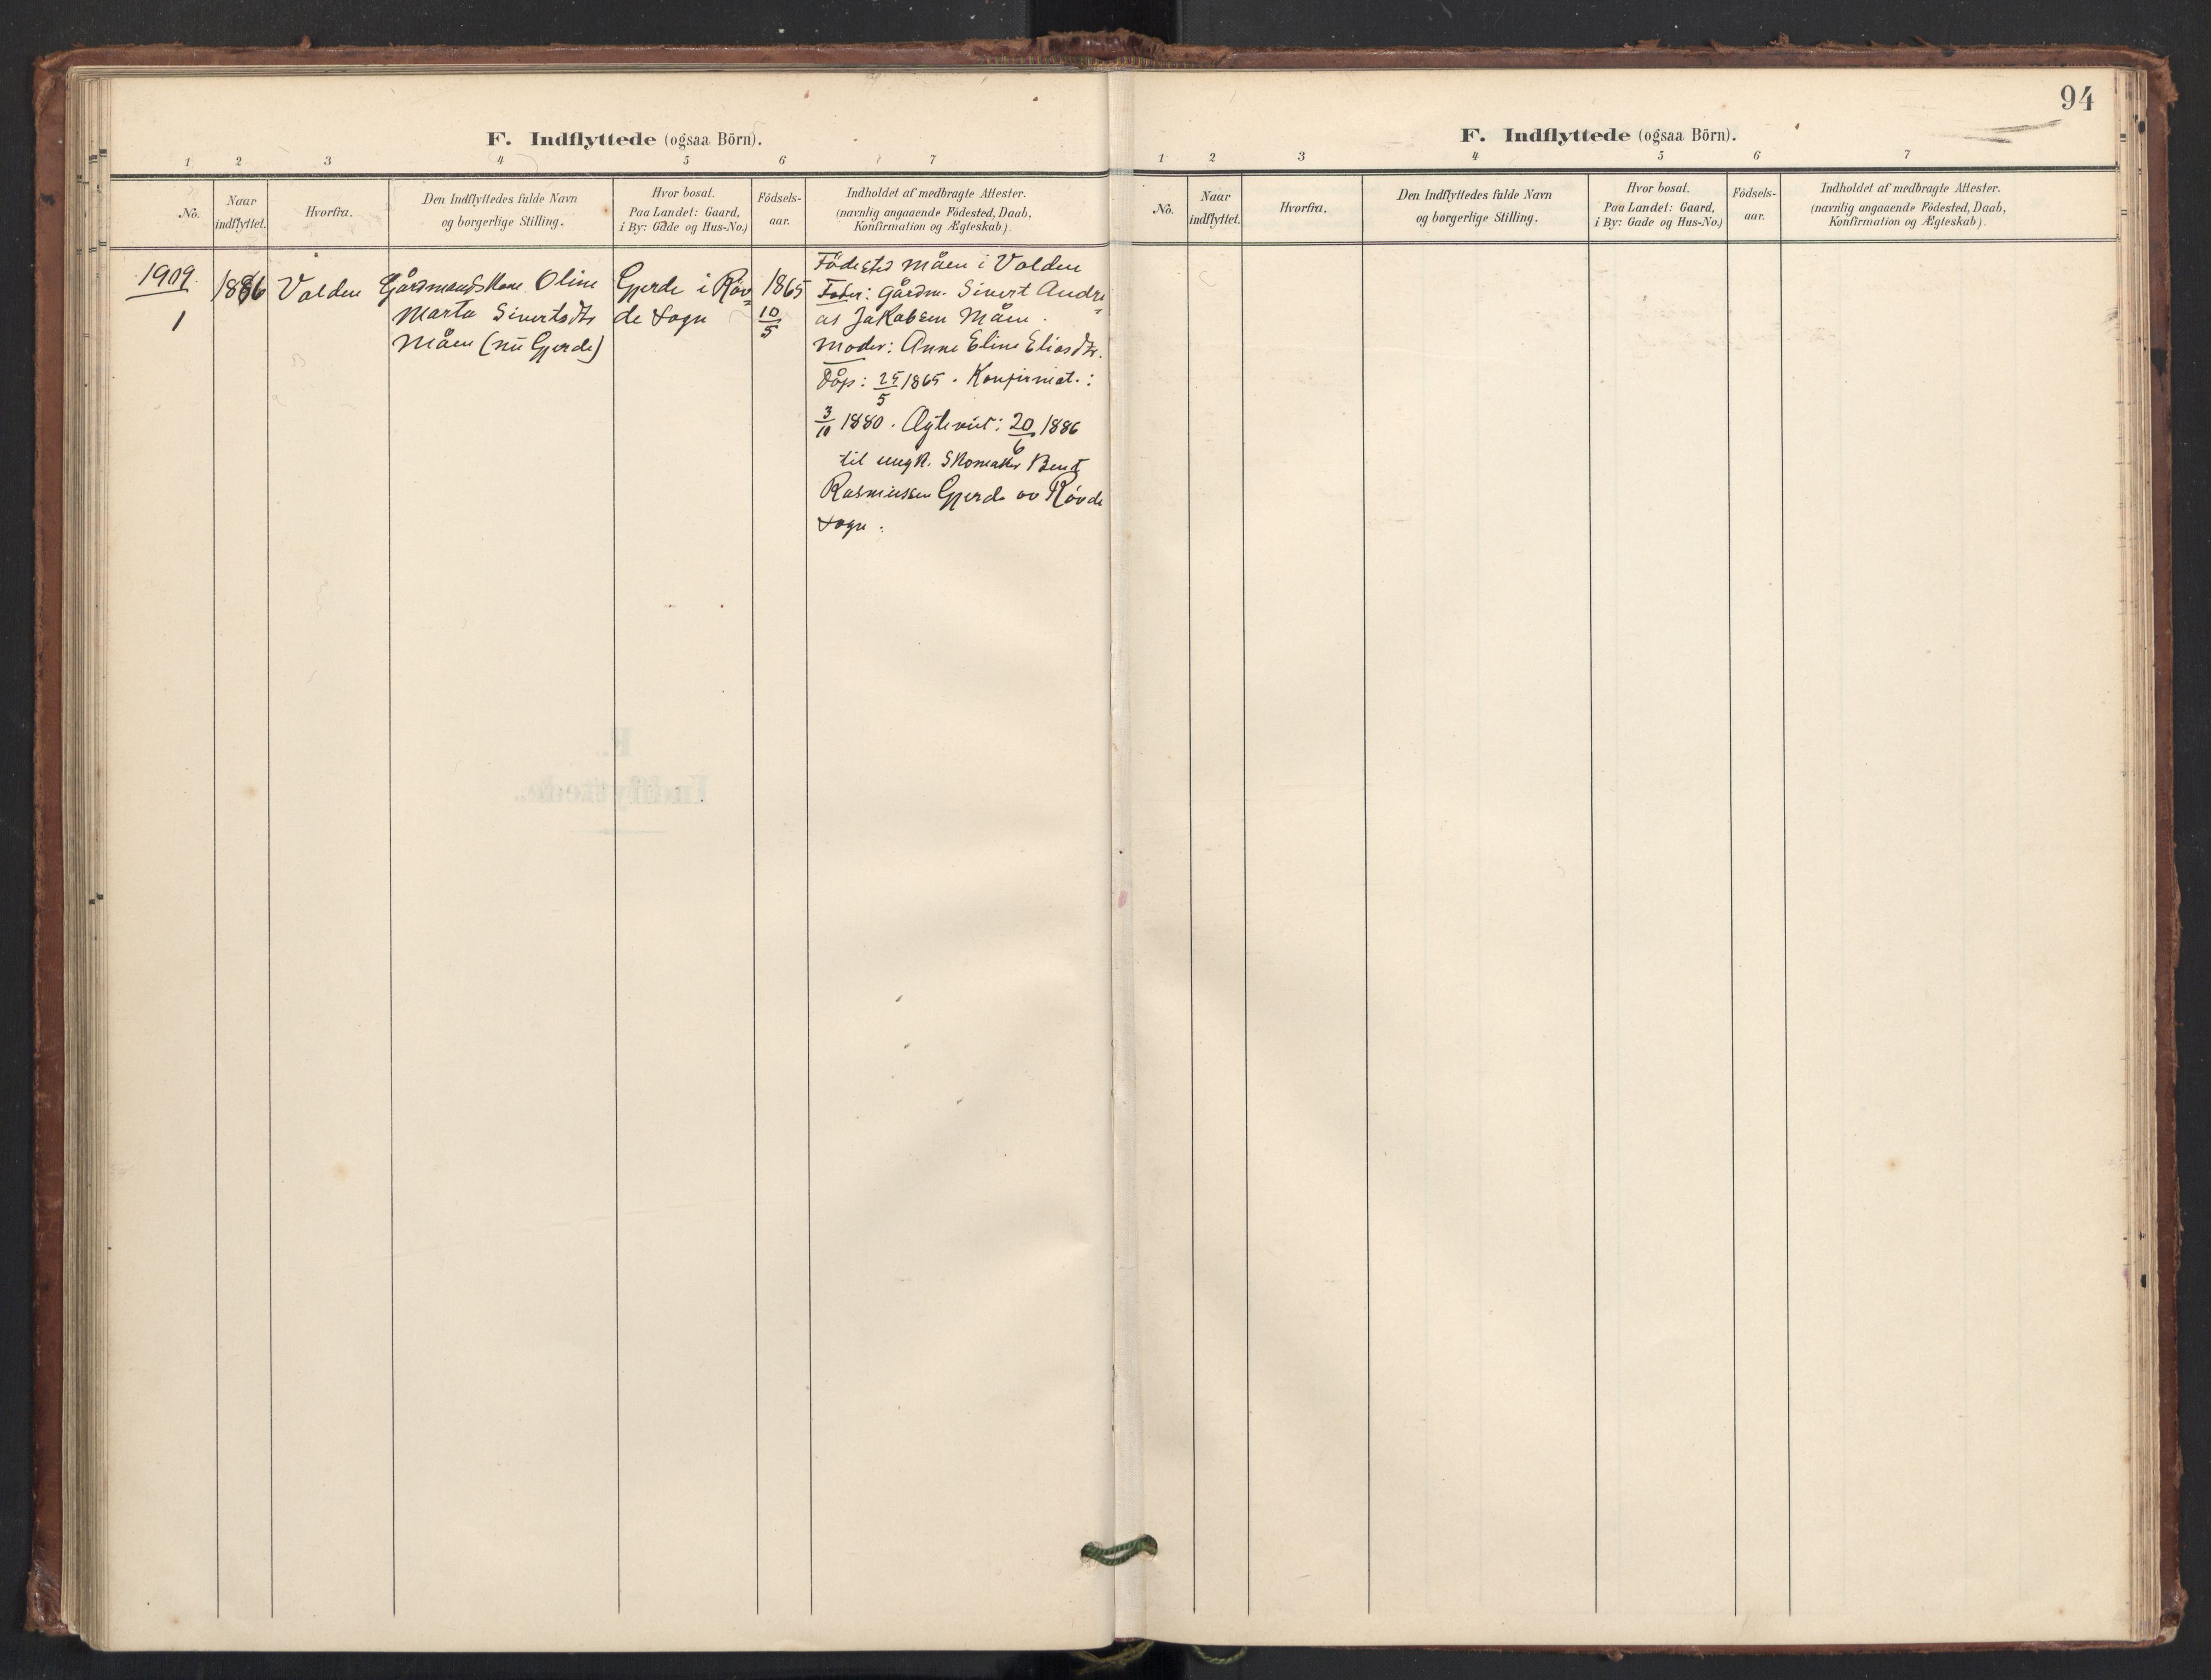 94
F. Indflyttede (ogsaa Börn).
1 2 3 4 5 6 7
No.
Naar indflyttet.
Hvorfra.
Den Indflyttedes fulde Navn
og borgerlige Stilling.
Hvor bosat.
Paa Landet: Gaard,
i By: Gade og Hus-No.)
Födsels-
aar.
Indholdet af medbragte Attester.
(navnlig angaaende Födested, Daab,
Konfirmation og Ægteskab).
1909.
1
1886
Volden
Gårdmandskone Oline
Marta Sivertsdtr
Måen (nu Gjerde)
Gjerde i Röv=
de Sogn
1865
10/5
Födested Måen i Volden
Fader: Gårdm. Sivert Andre=
as Jakobsen Måen.
Moder: Anne Eline Eliasdtr.
Dåp: 25/5 1865. Konfirmat.:
3/10 1880. Ægteviet: 20/6 1886
til ungk. Skomaker Bent
Rasmussen Gjerde av Rövde
Sogn.
F. Indflyttede (ogsaa Börn).
1 2 3 4 5 6 7
No.
Naar
indflyttet.
Hvorfra.
Den Indflyttedes fulde Navn
og borgerlige Stilling.
Hvor bosat.
Paa Landet: Gaard,
i By: Gade og Hus-No.)
Födsels-
aar.
Indholdet af medbragte Attester.
(navnlig angaaende Födested, Daab,
Konfirmation og Ægteskab).
F.
Indflyttede.